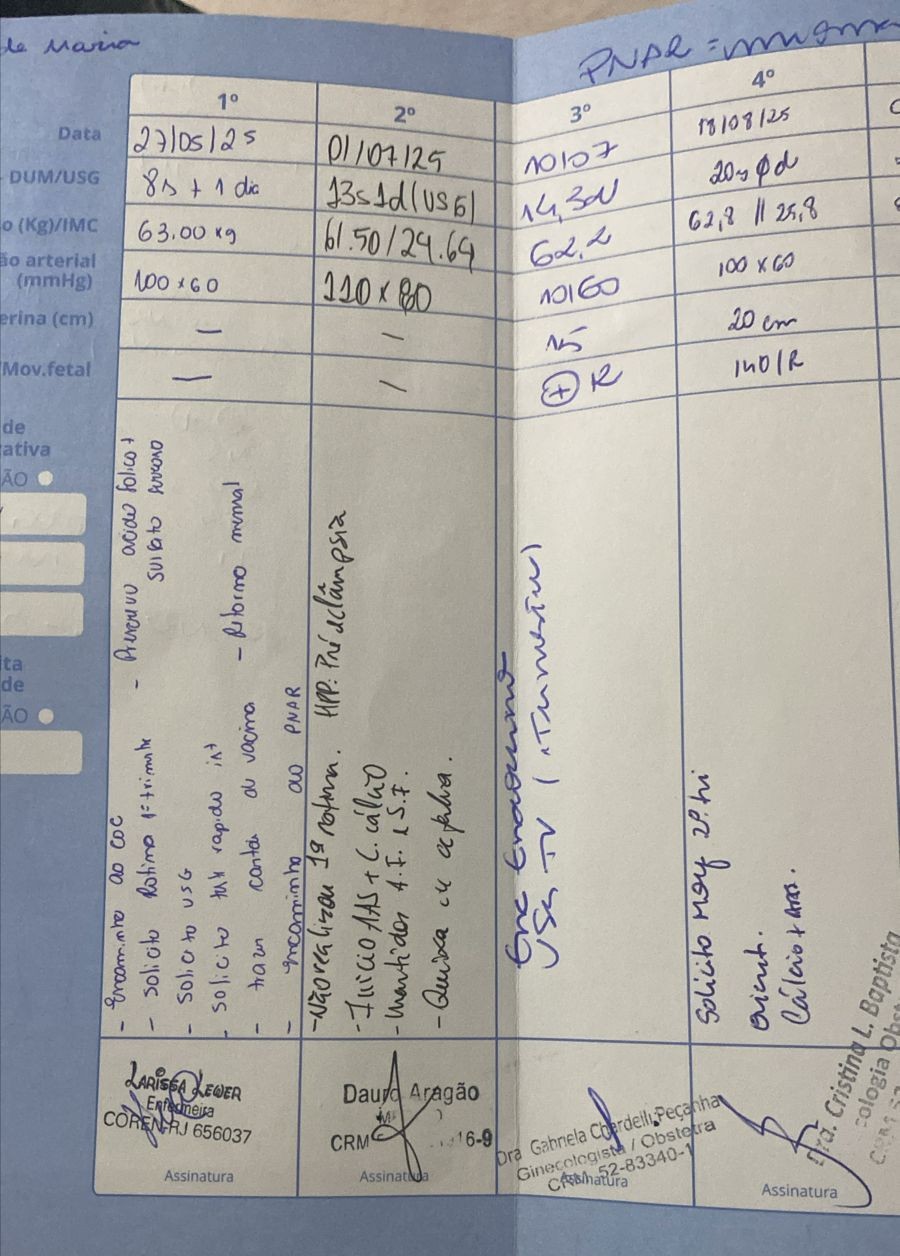 de Maria
PNAR =
1º 2º 3º 4º
Data 27/05/25 01/07/25 10/07 18/08/25
DUM/USG 8s + 1 dia 13s1d(USG) 14,3d 20s Ød
o (Kg)/IMC 63.00 kg 61.50/24.64 62,2 62,8 // 25,8
ão arterial
(mmHg) 100 x 60 110 x 80 10/60 100 x 60
erina (cm) — — 15 20 cm
Mov.fetal — — + R 140/R
de
ativa
ÃO
ita
de
ÃO
- encaminho ao COC
- solicito Rotina 1º trimestre
- solicito USG
- solicito teste rapido ist
- trazer cartão de vacina
- encaminho ao PNAR
- Prescrevo acido folico +
sulfato ferroso
- Retorno mensal
- Não realizou 1ª rotina. HPP: Pré eclâmpsia
- Inicio AAS + C. cálcio
- Mantidos A.F. e S.F.
- Queixa de
USG TV
Solicito 2º tri
orient.
Cálcio + AAS.
LARISSA LEWER
Enfermeira
COREN-RJ 656037
Assinatura
Dauro Aragão
CRM 16-9
Assinatura
Dra Gabriela Peçanha
Ginecologista / Obstetra
CRM 52-83340-1
Assinatura
Dra. Cristina L. Baptista
cologia Obs
CRM 52
Assinatura